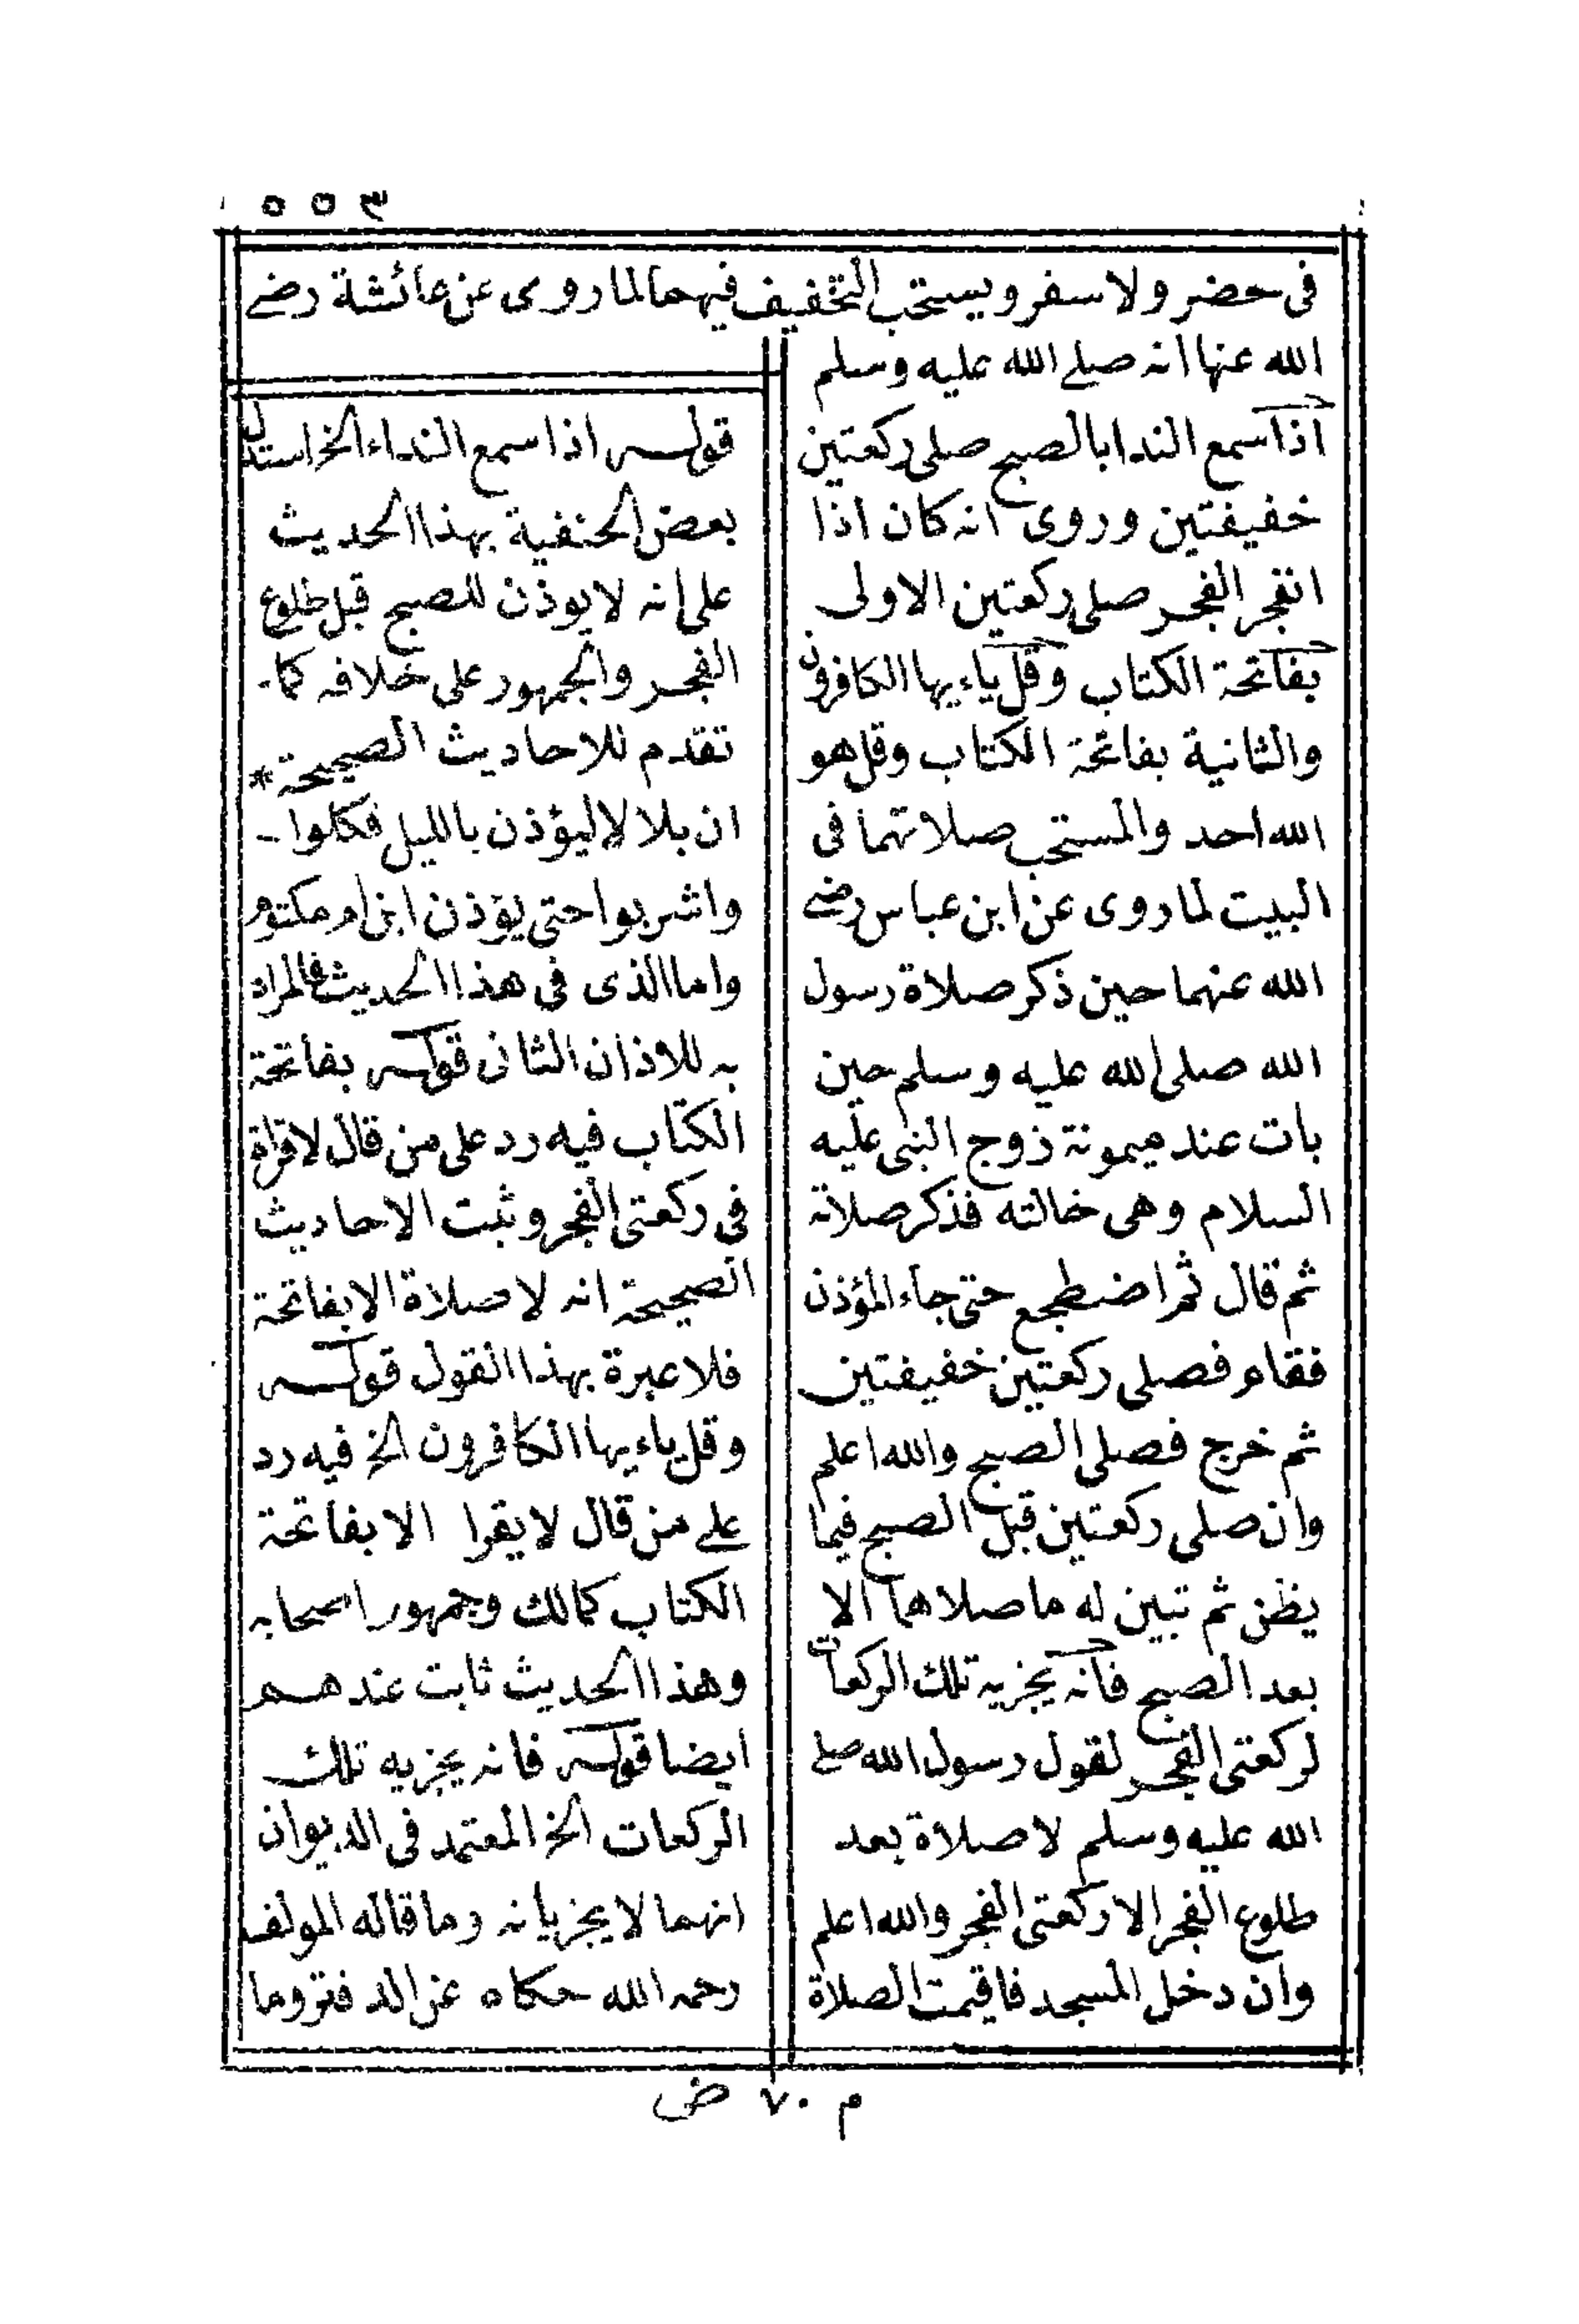 ٥٥٣
فى حضر ولا سفر ويستحب التخفيف فيهما لما روى عن عائشة رضي
الله عنها انه صلى الله عليه وسلم
اذا سمع الندا بالصبح صلى ركعتين
خفيفتين وروى انه كان اذا
انفجر الفجر صلى ركعتين الاولى
بفاتحة الكتاب وقل ياءيها الكافرون
والثانية بفاتحة الكتاب وقل هو
الله احد والمستحب صلاتهما فى
البيت لما روى عن ابن عباس رضي
الله عنهما حين ذكر صلاة رسول
الله صلى الله عليه وسلم حين
بات عند ميمونة زوج النبى عليه
السلام وهى خالته فذكر صلاته
ثم قال ثم اضطجع حتى جاء المؤذن
فقام فصلى ركعتين خفيفتين
ثم خرج فصلى الصبح والله اعلم
وان صلى ركعتين قبل الصبح فيما
يظن ثم تبين له ما صلاهما الا
بعد الصبح فانه يجزيه تلك الركعات
لركعتى الفجر لقول رسول الله صلى
الله عليه وسلم لا صلاة بعد
طلوع الفجر الا ركعتى الفجر والله اعلم
وان دخل المسجد فاقيمت الصلاة
قوله اذا سمع النداء الخ استدل
بعض الحنفية بهذا الحديث
على انه لا يوذن للصبح قبل طلوع
الفجر والجمهور على خلافه كما-
تقدم للاحاديث الصحيحة *
ان بلالا ليؤذن بالليل فكلوا-
واشربوا حتى يؤذن ابن ام مكتوم
واما الذى فى هذا الحديث فالمراد
به للاذان الثانى قوله بفاتحة
الكتاب فيه رد على من قال لا قراة
فى ركعتى الفجر وثبت الاحاديث
الصحيحة انه لا صلاة الا بفاتحة
فلا عبرة بهذا القول قوله
وقل ياءيها الكافرون الخ فيه رد
على من قال لا يقرا الا بفاتحة
الكتاب كمالك وجمهور اصحابه
وهذا الحديث ثابت عندهم
ايضا قوله فانه يجزيه تلك
الركعات الخ المعتمد فى الديوان
انهما لا يجزيانه وما قاله المولف
رحمه الله حكاه عن الدفتر وما
م ٧٠ ض